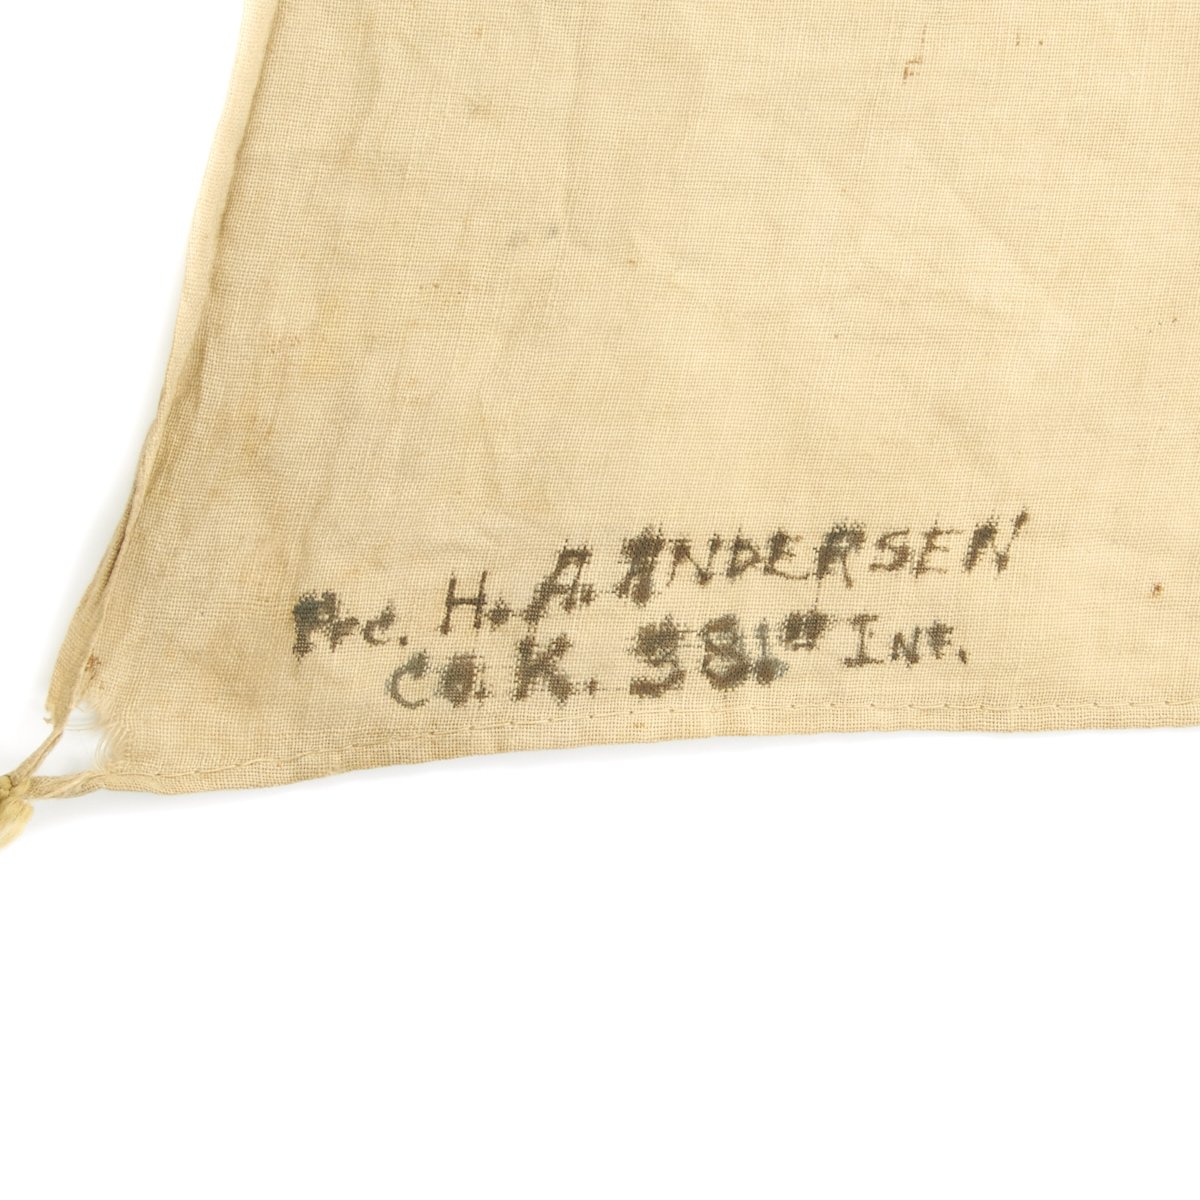 Pfc. H. A. ANDERSEN
CO. K. 381st INF.